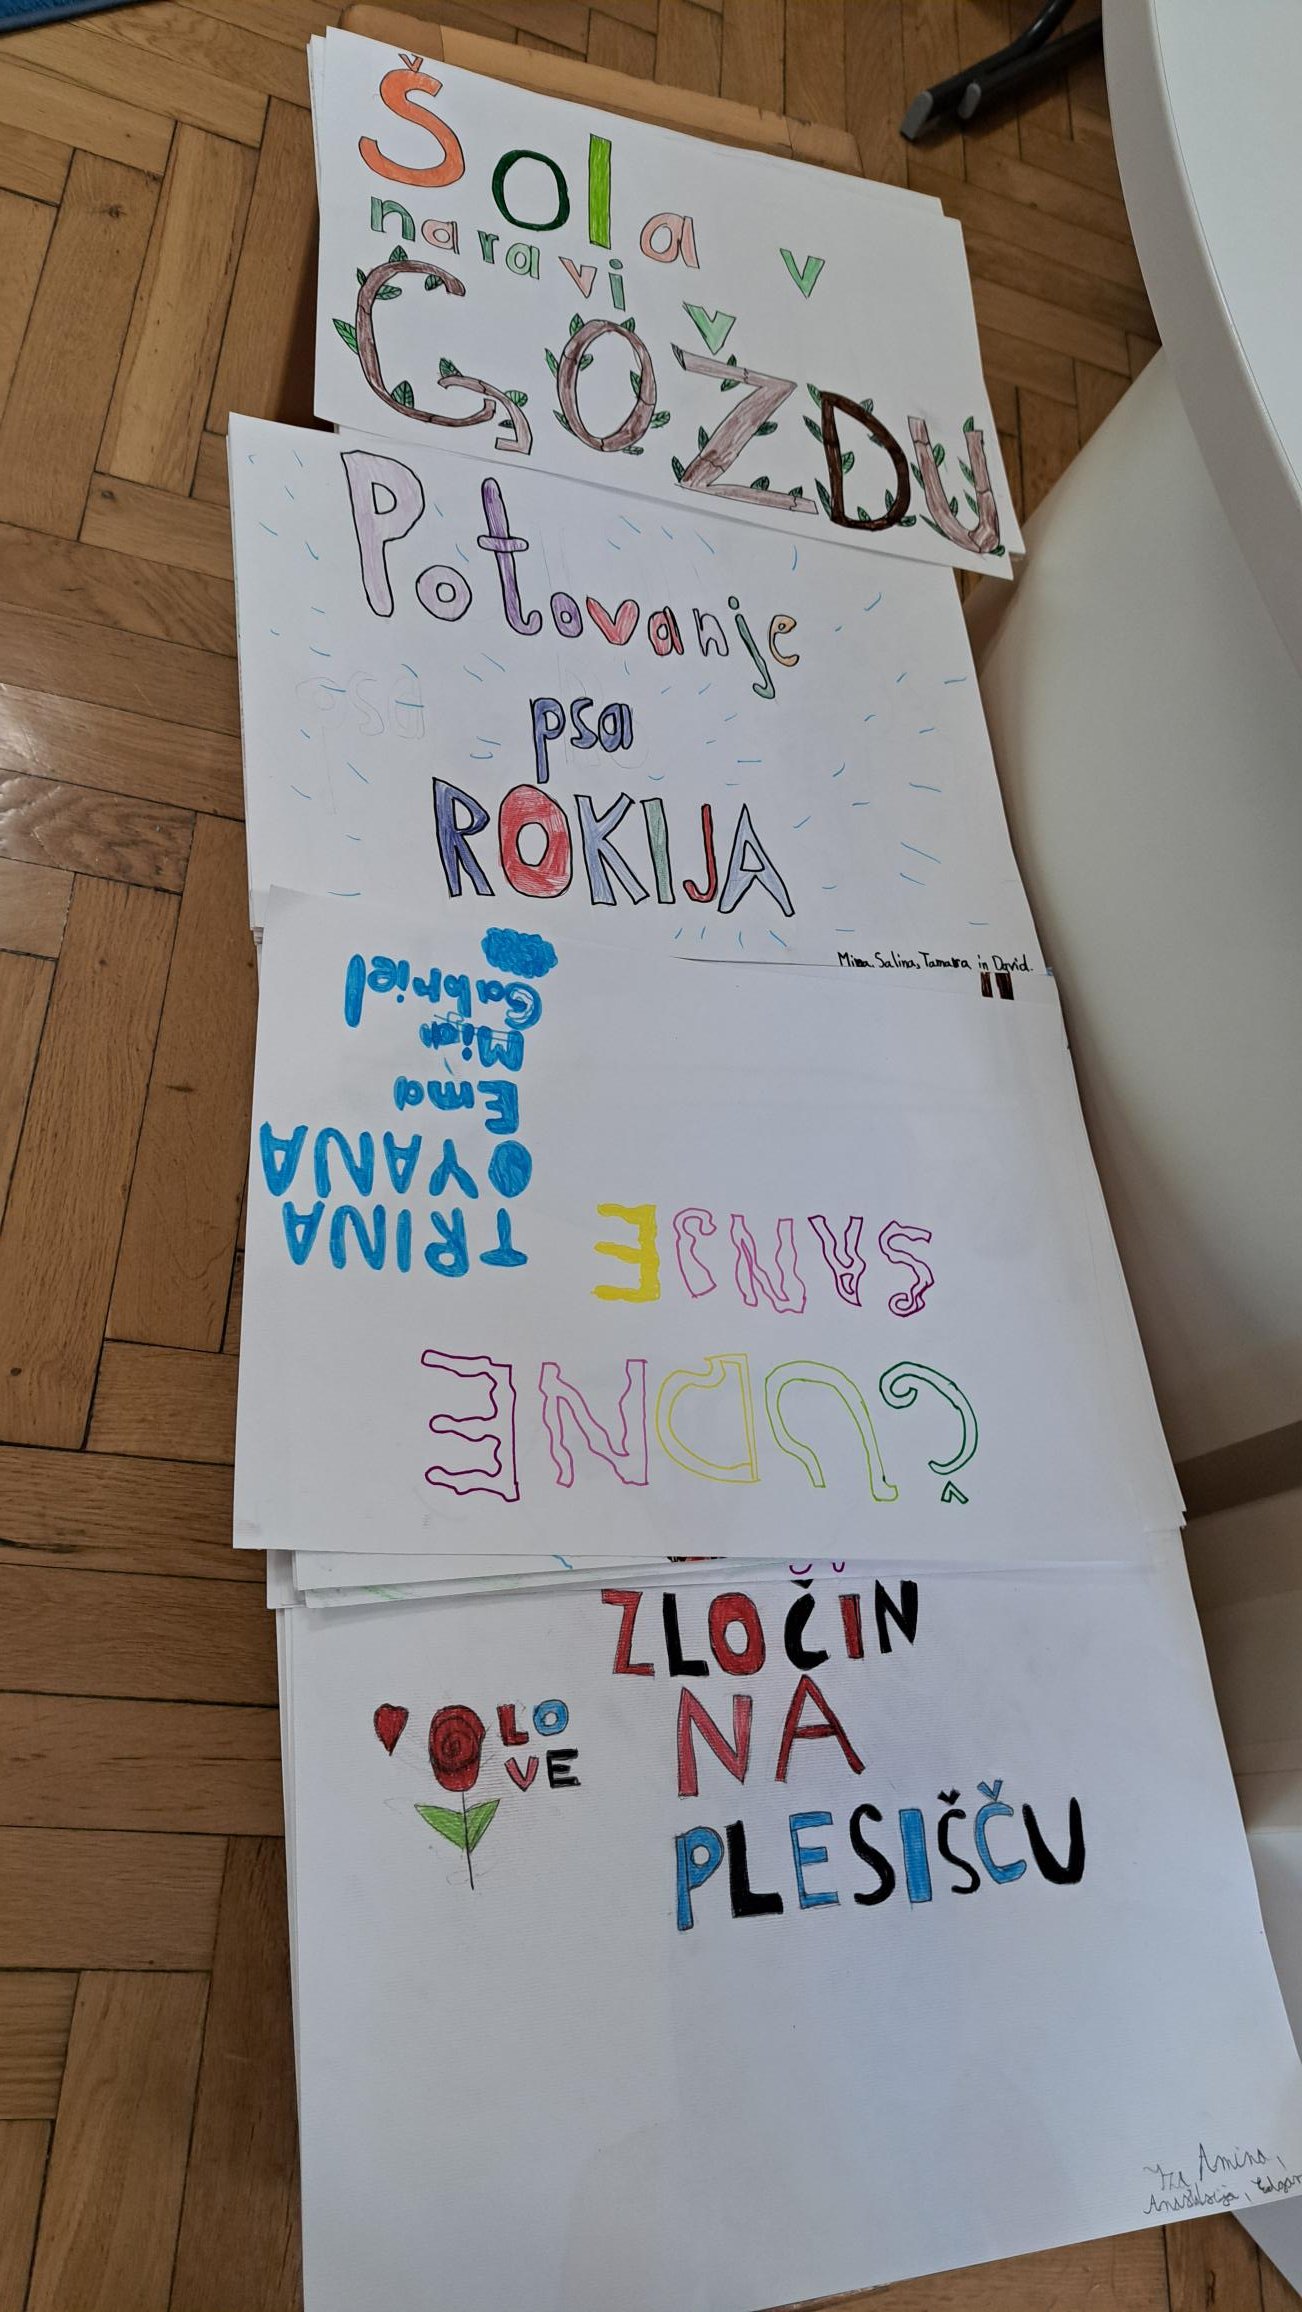 Šola v
naravi v
GOŽDU
Potovanje
psa
ROKIJA
Mina, Salina, Tamara in David.
ČUDNE
SANJE
TRINA
OYANA
Ema
Mia
Gabriel
ZLOČIN
NA
PLESIŠČU
LO
VE
Iza, Amina,
Anastasija, Edgar